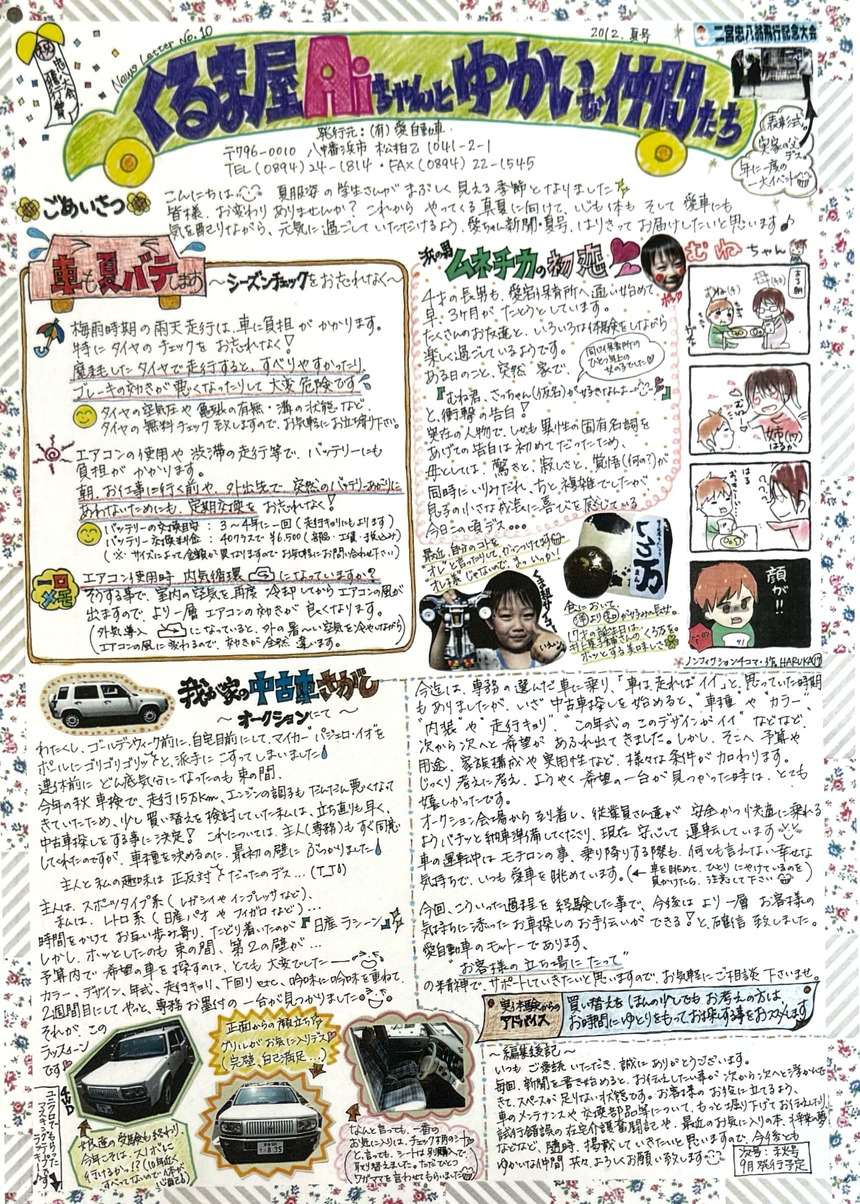 News Letter No.10
2012. 夏号
くるま屋Aiちゃんとゆかいな仲間たち
発行元：(有) 愛自動車
〒796-0010 八幡浜市 松柏乙1041-2-1
TEL(0894)24-1814・FAX(0894)22-1545
二宮忠八翁飛行記念大会
表彰式。
実家の父
デス。
年に一度の
一大イベント
ごあいさつ
こんにちは。夏服姿の学生さんがまぶしく見える季節となりました
皆様、お変わりありませんか？これからやってくる真夏に向けて、心も体もそして愛車にも
気を配りながら、元気に過ごしていただけるよう、愛ちゃん新聞・夏号、はりきってお届けしたいと思います♪
車も夏バテします
〜シーズンチェックをお忘れなく〜
梅雨時期の雨天走行は、車に負担がかかります。
特にタイヤのチェックをお忘れなく！
磨耗したタイヤで走行すると、すべりやすかったり、
ブレーキの効きが悪くなったりして大変危険です
タイヤの空気圧や亀裂の有無・溝の状態など、
タイヤの無料チェック致しますので、お気軽にお立寄り下さい。
エアコンの使用や渋滞の走行等で、バッテリーにも
負担がかかります。
朝、お仕事に行く前や、外出先で、突然のバッテリーあがりに
あわないためにも、定期交換をお忘れなく！
バッテリーの交換目安：3〜4年に一回（走行キョリにもよります）
バッテリー交換料金：40Bクラスで￥6,500（部品・工賃・税込み）
（※サイズによって金額が異なりますのでお気軽にお問い合わせ下さい）
一口メモ
エアコン使用時、内気循環になっていますか？
そうする事で、室内の空気を再度冷却してからエアコンの風が
出ますので、より一層エアコンの効きが良くなります。
（外気導入になっていると、外の暑〜い空気を冷やしながら
エアコンの風に変わるので、効きが全然違います。
我が男
ムネチカの初恋
4才の長男も、愛宕保育所へ通い始めて
早、3ヶ月がたとうとしています。
たくさんのお友達と、いろいろな体験をしながら
楽しく過ごしているようです。
ある日のこと、突然家で、
同じ保育所の
ひとつ年上の
女の子でした
『むね君、さっちゃん（仮名）が好きなんよー』
と、衝撃の告白！
実在の人物で、しかも異性の固有名詞を
あげての告白は初めてだったため、
母としては、驚きと、寂しさと、覚悟（何の？）が
同時にいりみだれ、ちと複雑でしたが
息子の小さな成長に喜びを感じている
今日この頃デス…
最近、自分のコトを
いろ万
食において、
17才の誕生日は
むねちゃん
ある朝
むね(4)
母(40)
姉(17)
はるか
顔が!!
ノンフィクション4コマ・作 HARUKA⑰
我が家の中古車さがし
〜オークションにて〜
わたくし、ゴールデンウィーク前に、自宅目前にして、マイカー“パジェロ・イオ”を
ポールにゴリゴリゴリッと、派手にこすってしまいました
連休前にどん底気分になったのも束の間、
今年の秋車検で、走行15万Km、エンジンの調子もだんだん悪くなって
きていたため、少し買い替えを検討していた私は、立ち直りも早く、
中古車探しをする事に決定！これについては、主人（専務）もすぐ同意
してくれたのですが、車種を決めるのに、最初の壁にぶつかりました
主人と私の趣味は正反対だったのデス…
主人は、スポーツタイプ系（レガシィやインプレッサなど）、
私は、レトロ系（日産パオやフィガロなど）…
時間をかけてお互い歩み寄り、たどり着いたのが『日産ラシーン』
しかし、ホッとしたのも束の間、第2の壁が…
予算内で希望の車を探すのは、とても大変でした
カラー、デザイン、年式、走行キョリ、下回りetc、吟味に吟味を重ねて
2週間目にしてやっと、専務お墨付の一台が見つかりました
それが、この
ラシーン
です
正面からの顔立ちや
グリルがお気に入りデス
（完璧、自己満足…）
4WD
娘達の受験も終わり、
今年こそは、スノボに
行けるかしら!?
なんと言っても、一番の
お気に入りは、チェック柄のシート
と、言っても、シートは別購入で、
取り替えました。ただひとつ
ワガママを言わせてもらいました。
今迄は、専務の選んだ車に乗り、「車は走ればイイ」と、思っていた時期
もありましたが、いざ中古車探しを始めると、“車種”や“カラー”
“内装”や“走行キョリ”、“この年式のこのデザインがイイ”などなど、
次から次へと希望があふれ出てきました。しかし、そこへ予算や
用途、家族構成や実用性など、様々な条件が加わります。
じっくり考えに考え、ようやく希望の一台が見つかった時は、とても
嬉しかったです。
オークション会場から到着し、従業員さん達が安全かつ快適に乗れる
ようバチッと納車準備してくださり、現在安心して運転しています
車の運転中はモチロンの事、乗り降りする際も、何とも言えない幸せな
気持ちで、いつも愛車を眺めています。（←車を眺めて、ひとりにやけているのを
見かけたら、注意して下さい
今回、こういった過程を経験した事で、今後はより一層お客様の
気持ちに添ったお車探しのお手伝いができる！と、確信致しました。
愛自動車のモットーであります、
“お客様の立ち場にたって”
の精神で、サポートしていきたいと思いますので、お気軽にご相談下さいませ。
実体験からの
アドバイス
買い替えをほんの少しでもお考えの方は、
お時間にゆとりをもってお探しする事をおススメします
〜編集後記〜
いつもご愛読いただき、誠にありがとうございます。
毎回、新聞を書き始めると、お伝えしたい事が次から次へと浮かんで
きて、スペースが足りない状態です。お客様のお役に立てるよう、
車のメンテナンスや交換部品等について、もっと掘り下げてお伝えしたり、
試行錯誤の在宅介護奮闘記や、最近のお気に入りの本、将来の夢
などなど、随時、掲載していきたいと思いますので、今後とも
ゆかいな仲間共々、よろしくお願い致します
次号：秋号
9月発行予定